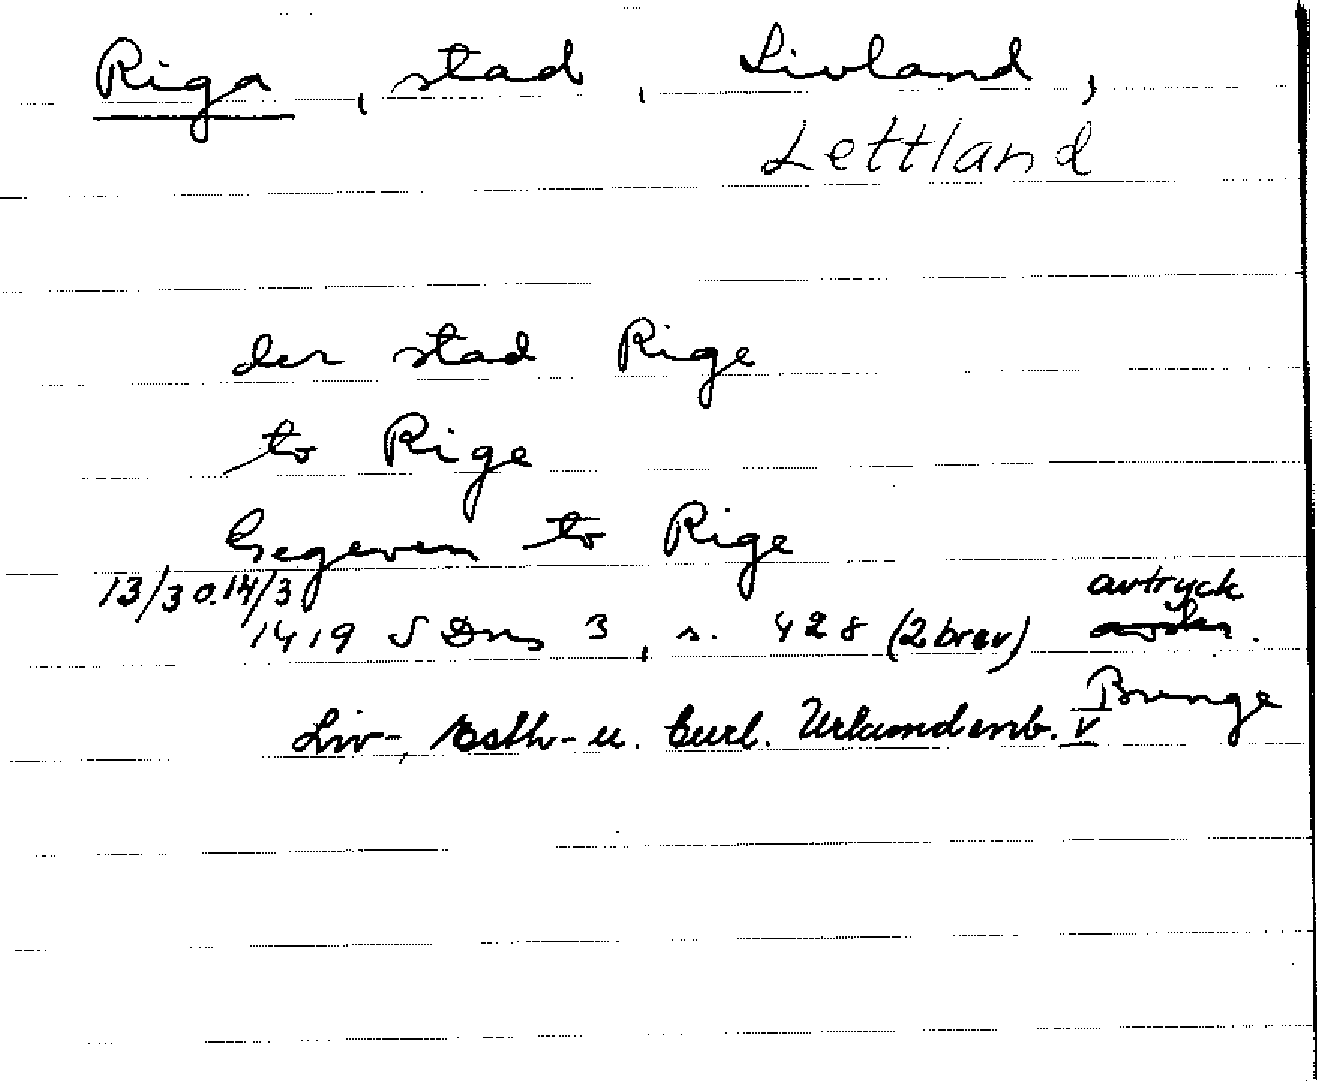 Riga, stad, Livland,
Lettland
der stad Rige
to Rige
Gegeven to Rige
13/3 o. 14/3
1419 SDns 3, s. 428 (2 brev) avtryck
Liv-, Esth- u. Curl. Urkundenb. V Bunge